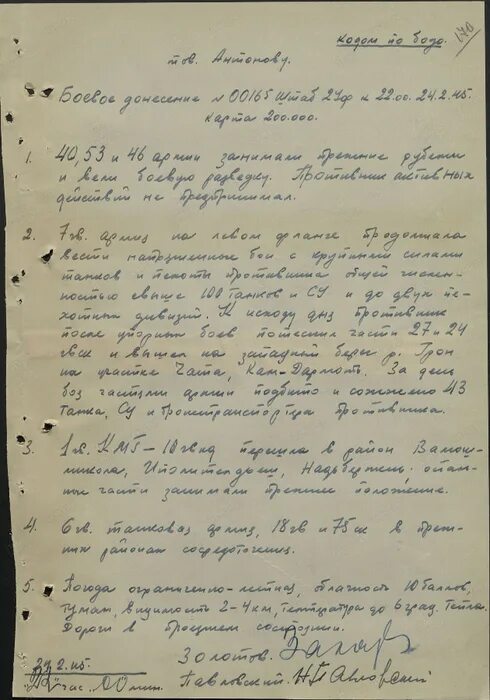 Кодом по бодо.
170
тов. Антонову.
Боевое донесение № 00165 Штаб 2УФ к 22.00. 24.2.45.
Карта 200.000.
1. 40, 53 и 46 армии занимали прежние рубежи
и вели боевую разведку. Противник активных
действий не предпринимал.
2. 7 гв. армия на левом фланге продолжала
вести напряженные бои с крупными силами
танков и пехоты противника общей числен-
ностью свыше 100 танков и СУ и до двух пе-
хотных дивизий. К исходу дня противник
после упорных боев потеснил части 27 и 24
гвск и вышел на западный берег р. Грон
на участке Чата, Кам-Дармоть. За день
боя частями армии подбито и сожжено 43
танка, СУ и бронетранспортера противника.
3. 1 гв. КМГ – 10 гвкд перешла в район Вамош-
микола, Ипольтендьеш, Надьбержень, осталь-
ные части занимали прежнее положение.
4. 6 гв. танковая армия, 18 гв и 75 ск в преж-
них районах сосредоточения.
5. Погода ограниченно-летная, облачность 10 баллов,
туман, видимость 2-4 км, температура до 6 град. тепла.
Дороги в проезжем состоянии.
Золотов. Захаров
Павловский. Н.Павловский
24.2.45.
час. 00 мин.